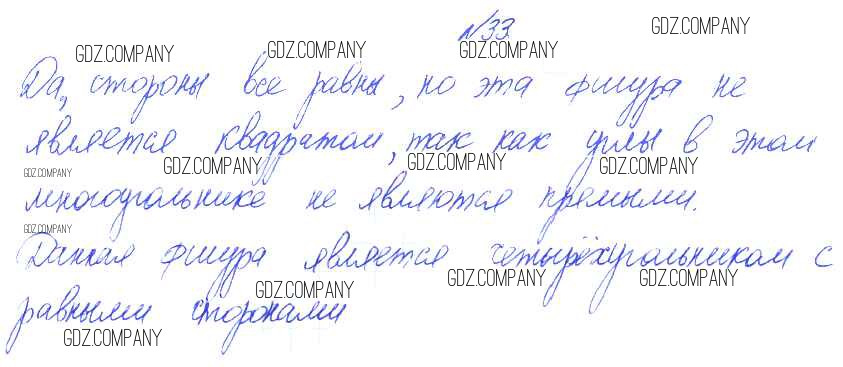 №33.
GDZ.COMPANY GDZ.COMPANY GDZ.COMPANY GDZ.COMPANY
Да, стороны все равны, но эта фигура не
является квадратом, так как углы в этом
GDZ.COMPANY GDZ.COMPANY GDZ.COMPANY GDZ.COMPANY
многоугольнике не являются прямыми.
GDZ.COMPANY
Данная фигура является четырёхугольником с
GDZ.COMPANY GDZ.COMPANY GDZ.COMPANY
равными сторонами
GDZ.COMPANY